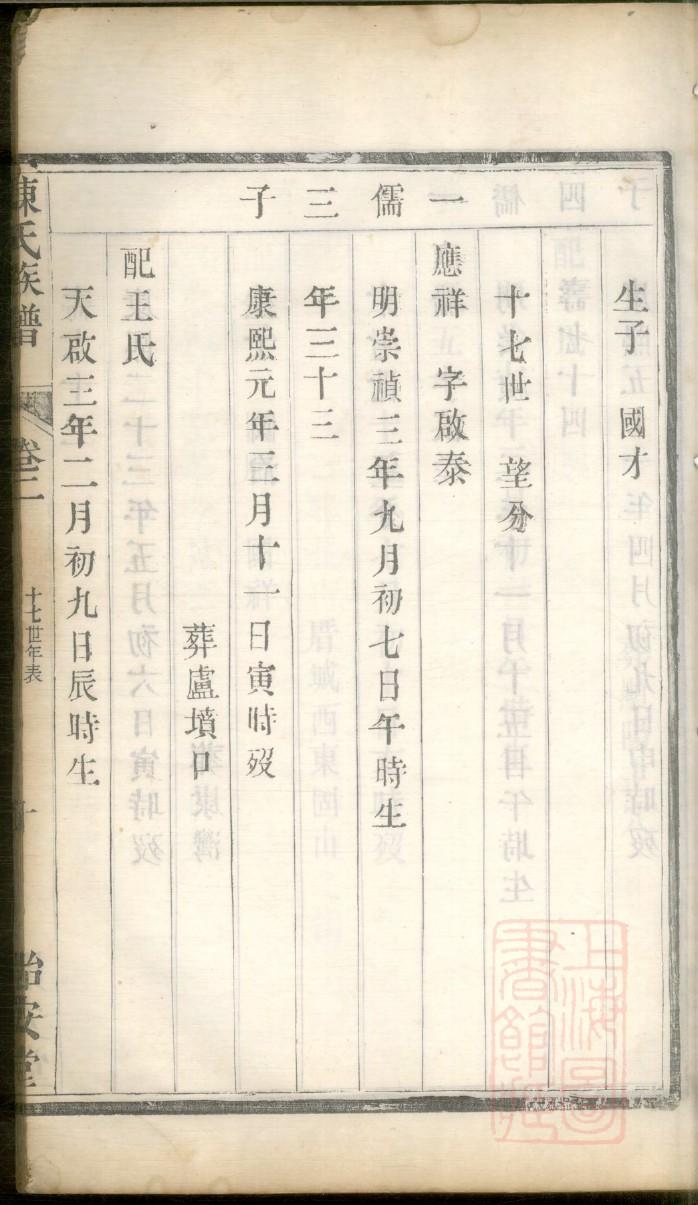 生子 國才
十七世 望分
一儒三子
應祥 字啟泰
明崇禎三年九月初七日午時生
年三十三
康熙元年三月十一日寅時歿
葬盧墳口
配王氏
天啟三年二月初九日辰時生
陳氏族譜 卷二 十七世年表 十 怡安堂
上海圖書館藏